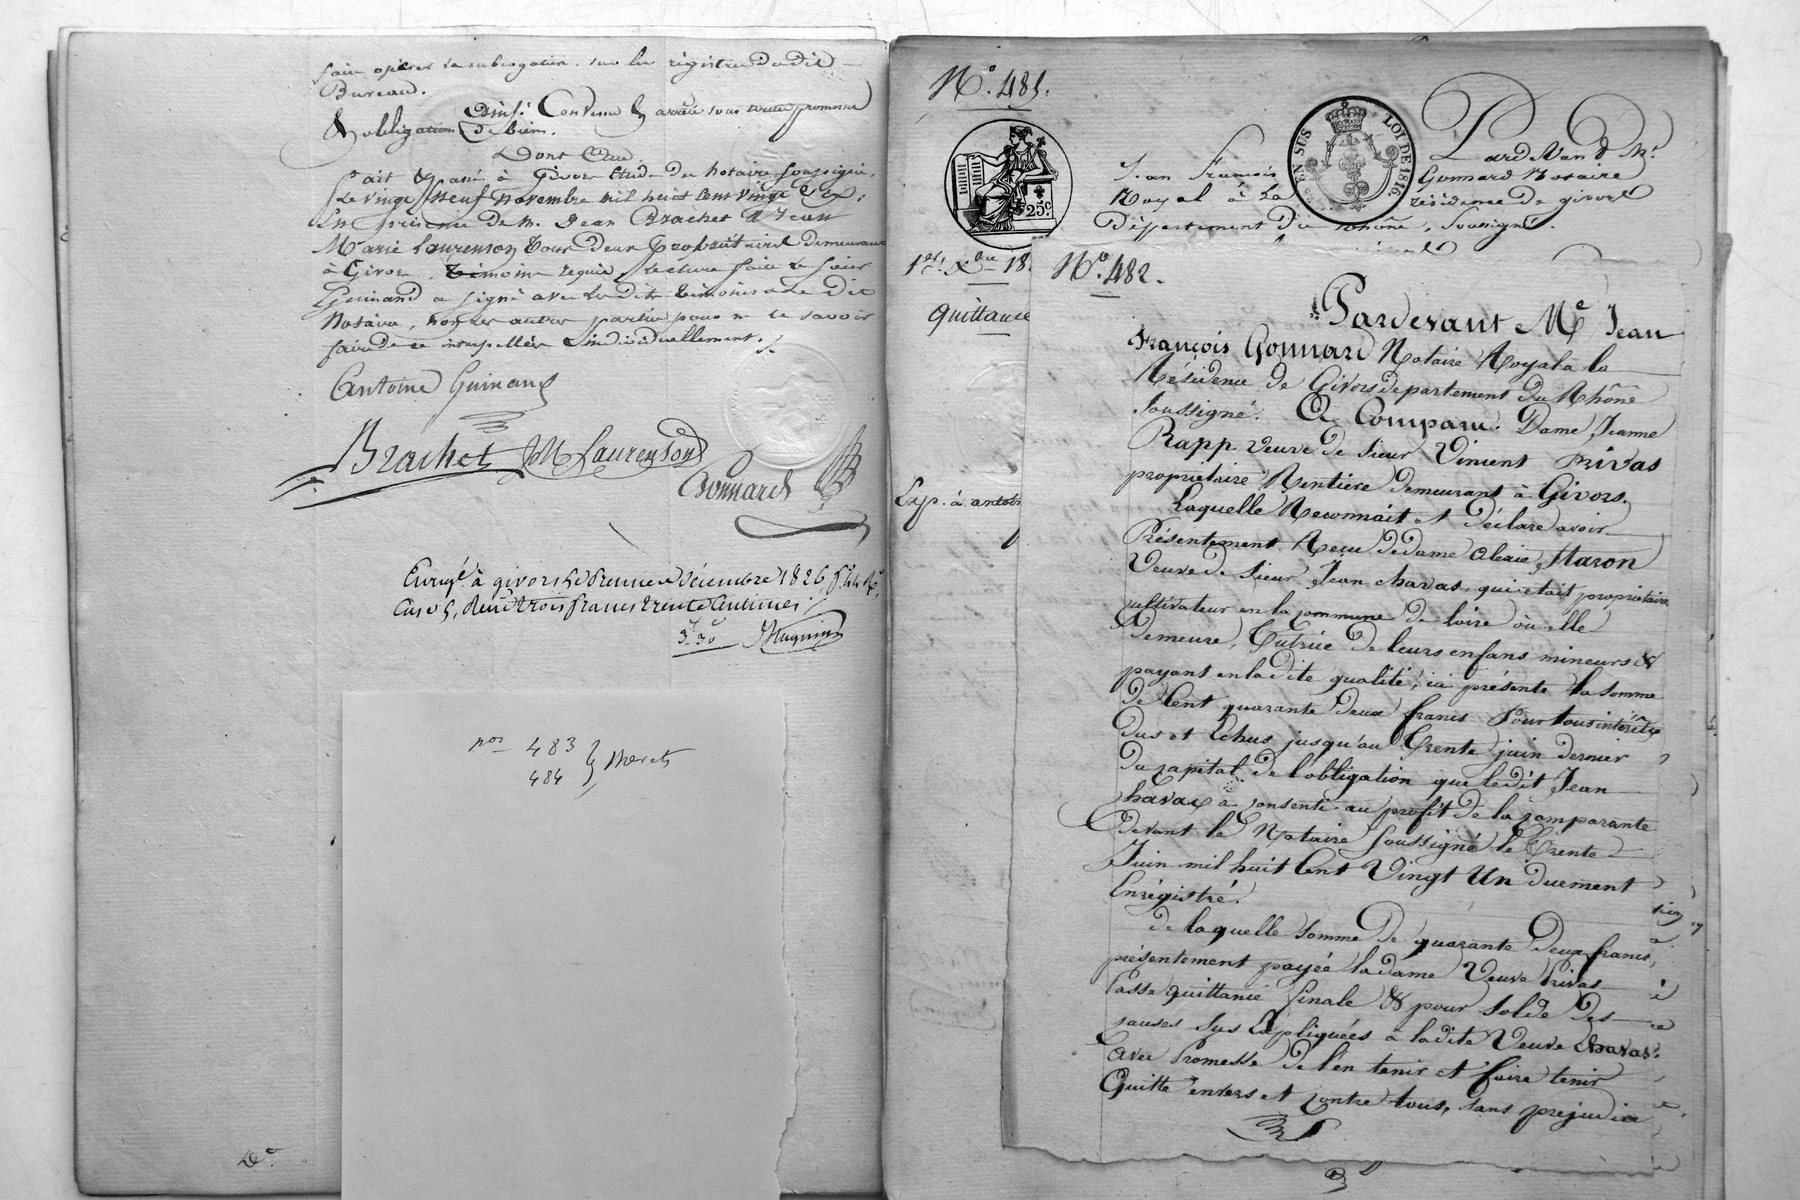 faire opérer la subrogation, sur les registres du dit
Bureau.
Ainsi Convenu & arrêté sous toutes promesses
& obligations de biens.
Dont Acte
fait & passé à Givors Etude du Notaire soussigné,
Le vingt Neuf Novembre mil huit cent vingt six;
En présence de m. Jean Brachet & Jean
Marie Laurenson tous deux propriétaires demeurant
à Givors, témoins requis, lecture faite le sieur
Guinand a signé avec les dits témoins & le dit
Notaire, non les autres parties pour ne le savoir
faire de ce interpellés individuellement.
Antoine Guinand
Brachet JM Laurenson
Gonnard
Enregé à givors le Premier décembre 1826, f°
Case 5, Reçu trois francs trente Centimes
3f 30
nos 483
484
No. 481.
25c.
EN SUS
LOI DE 1816
Pardevant Me
Jean François Gonnard Notaire
Royal à la résidence de givors
Département du Rhône, Soussigné.
1er Xbre 18
quittance
Exp. à antoi
No. 482.
Pardevant Me Jean
François Gonnard Notaire Royal à la
Résidence de Givors département du Rhône
soussigné. A Comparu Dame Jeanne
Rapp veuve de sieur Vincent Privas
propriétaire Rentière demeurant à Givors.
Laquelle Reconnait et déclare avoir
Présentement Reçu de dame Alexie Maron
Veuve de sieur Jean chavas, qui était propriétaire
cultivateur en la commune de loire où elle
demeure, Tutrice de leurs enfans mineurs &
payant en ladite qualité, ici présente la somme
de Cent quarante deux francs Pour tous intérêts
dus et Echus jusqu'au Trente juin dernier
du capital de l'obligation que ledit Jean
Chavas a consenti au profit de la comparante
devant le Notaire soussigné le Trente
Juin mil huit Cent Vingt Un duement
Enrégistré.
de laquelle somme de quarante deux francs,
présentement payée ladame Veuve Privas
Passe quittance finale & pour solde des
causes sus Expliquées à ladite Veuve Chavas
avec Promesse de l'en tenir et faire tenir
Quitte envers et contre tous, sans préjudice